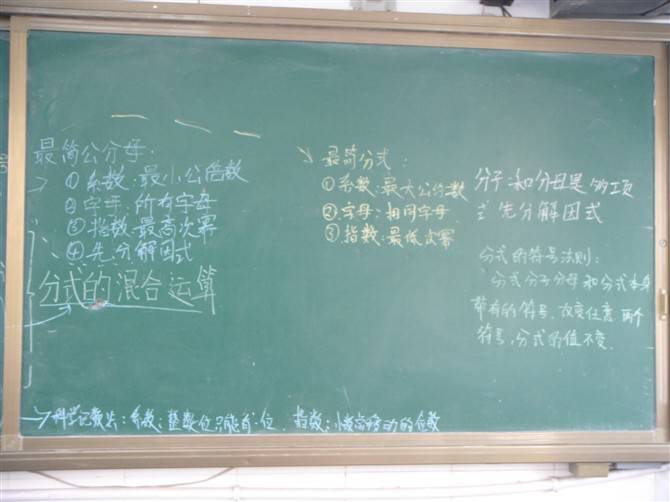 最简公分母：
①系数：最小公倍数
②字母：所有字母
③指数：最高次幂
④先分解因式
分式的混合运算
最简分式：
①系数：最大公倍数
②字母：相同字母
③指数：最低次幂
分子和分母是多项
式 先分解因式
分式的符号法则：
分式分子分母和分式本身
带有的符号，改变任意两个
符号，分式的值不变.
科学记数法：系数：整数位只能有1位 指数：小数点移动的位数